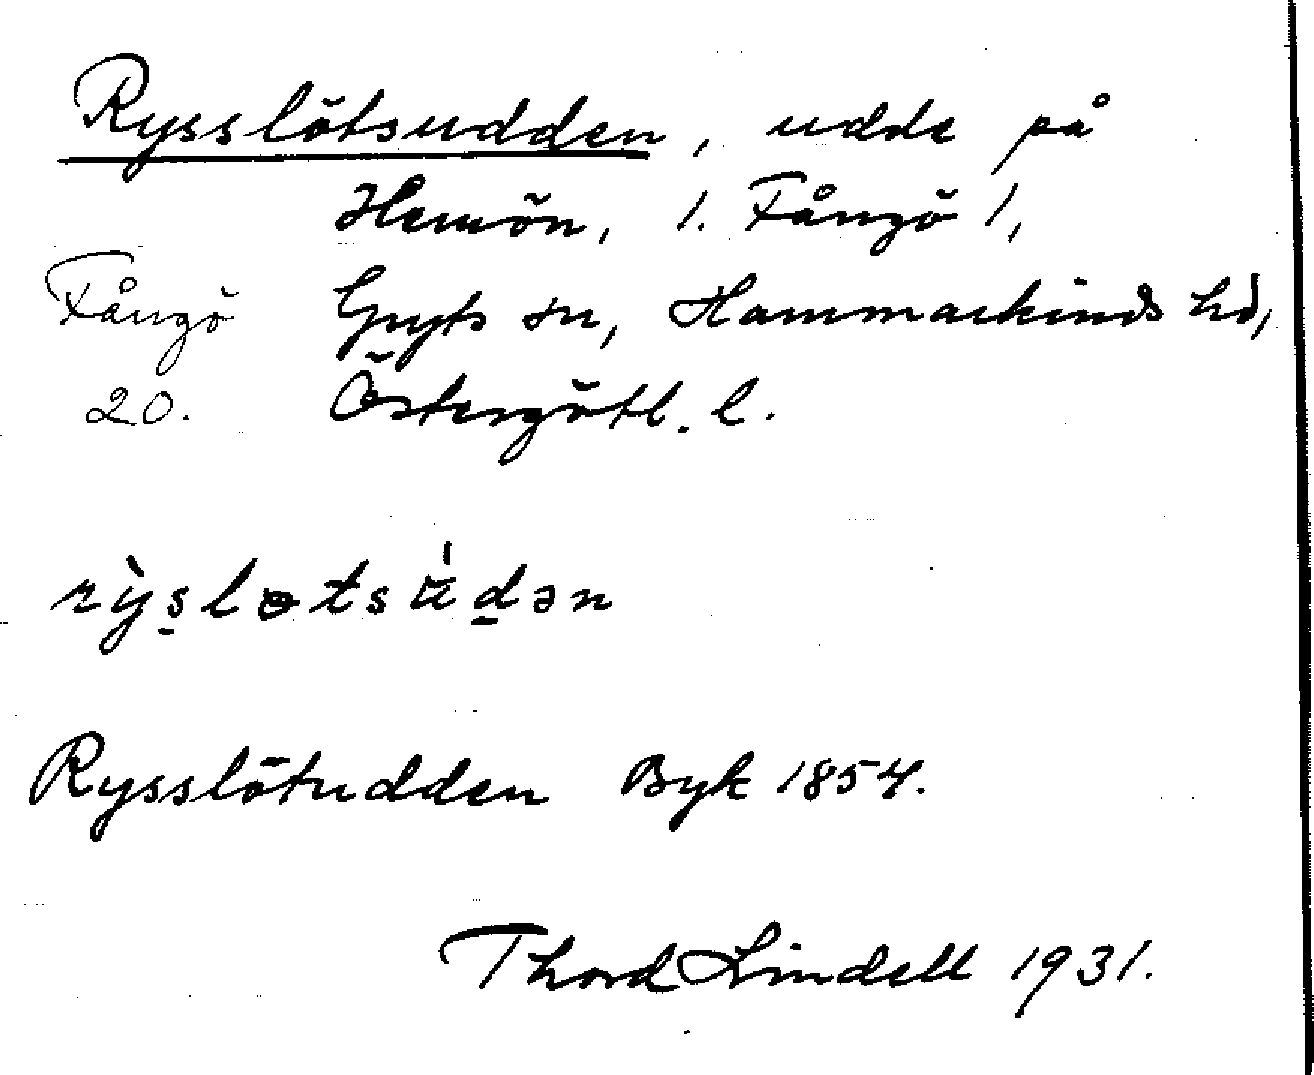 Rysslötsudden, udde på
Hemön, 1. Fångö 1,
Fångö Gryts sn, Hammarkinds hd,
20. Östergötl. l.
rỳslɵtsu̇dən
Rysslötudden Byk 1854.
Thord Lindell 1931.